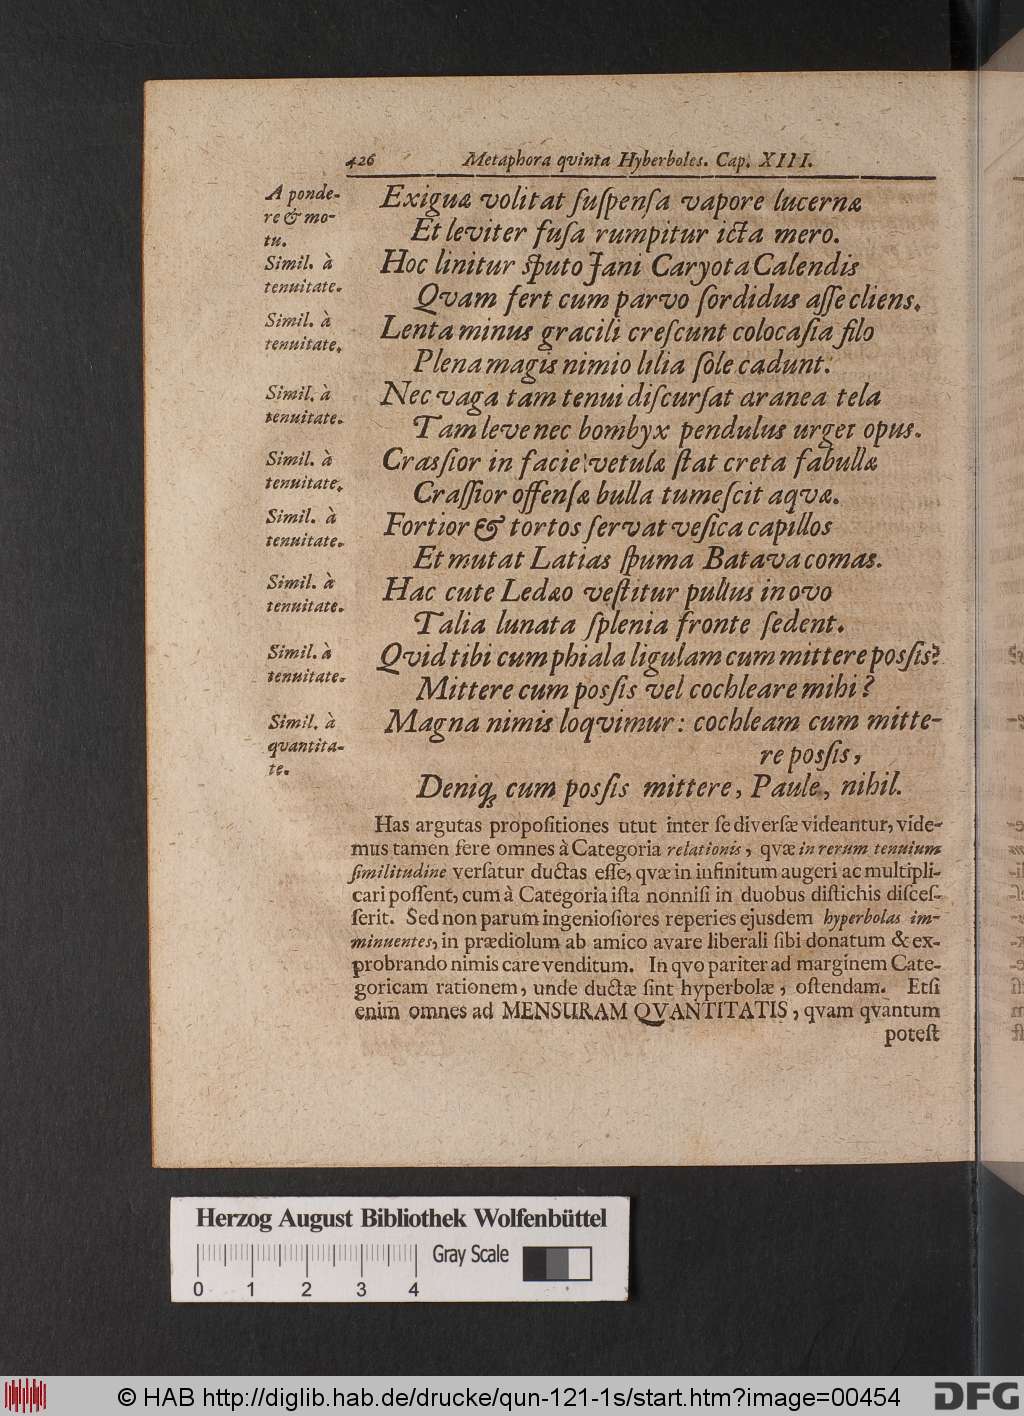 426 Metaphora qvinta Hyberboles. Cap. XIII.
A ponde-
re & mo-
tu.
Exiguæ volitat ſuſpenſa vapore lucernæ
Et leviter fuſa rumpitur icta mero.
Simil. à
tenuitate.
Hoc linitur ſputo Jani Caryota Calendis
Qvam fert cum parvo ſordidus aſſe cliens.
Simil. à
tenuitate.
Lenta minus gracili creſcunt colocaſia filo
Plena magis nimio lilia ſole cadunt.
Simil. à
tenuitate.
Nec vaga tam tenui diſcurſat aranea tela
Tam leve nec bombyx pendulus urget opus.
Simil. à
tenuitate.
Crasſior in facie vetulæ ſtat creta fabullæ
Craſſior offenſæ bulla tumeſcit aqvæ.
Simil. à
tenuitate.
Fortior & tortos ſervat veſica capillos
Et mutat Latias ſpuma Batava comas.
Simil. à
tenuitate.
Hac cute Ledæo veſtitur pullus in ovo
Talia lunata ſplenia fronte ſedent.
Simil. à
tenuitate.
Qvid tibi cum phiala ligulam cum mittere posſis?
Mittere cum posſis vel cochleare mihi?
Simil. à
quantita-
te.
Magna nimis loqvimur: cochleam cum mitte-
re posſis,
Deniq; cum posſis mittere, Paule, nihil.
Has argutas propoſitiones utut inter ſe diverſæ videantur, vide-
mus tamen fere omnes à Categoria relationis, qvæ in rerum tenuium
ſimilitudine verſatur ductas eſſe, qvæ in infinitum augeri ac multipli-
cari poſſent, cum à Categoria iſta nonniſi in duobus diſtichis diſceſ-
ſerit. Sed non parum ingenioſiores reperies ejusdem hyperbolas im-
minuentes, in prædiolum ab amico avare liberali ſibi donatum & ex-
probrando nimis care venditum. In qvo pariter ad marginem Cate-
goricam rationem, unde ductæ ſint hyperbolæ, oſtendam. Etſi
enim omnes ad MENSURAM QVANTITATIS, qvam qvantum
poteſt
Herzog August Bibliothek Wolfenbüttel
Gray Scale
0 1 2 3 4
© HAB http://diglib.hab.de/drucke/qun-121-1s/start.htm?image=00454
DFG